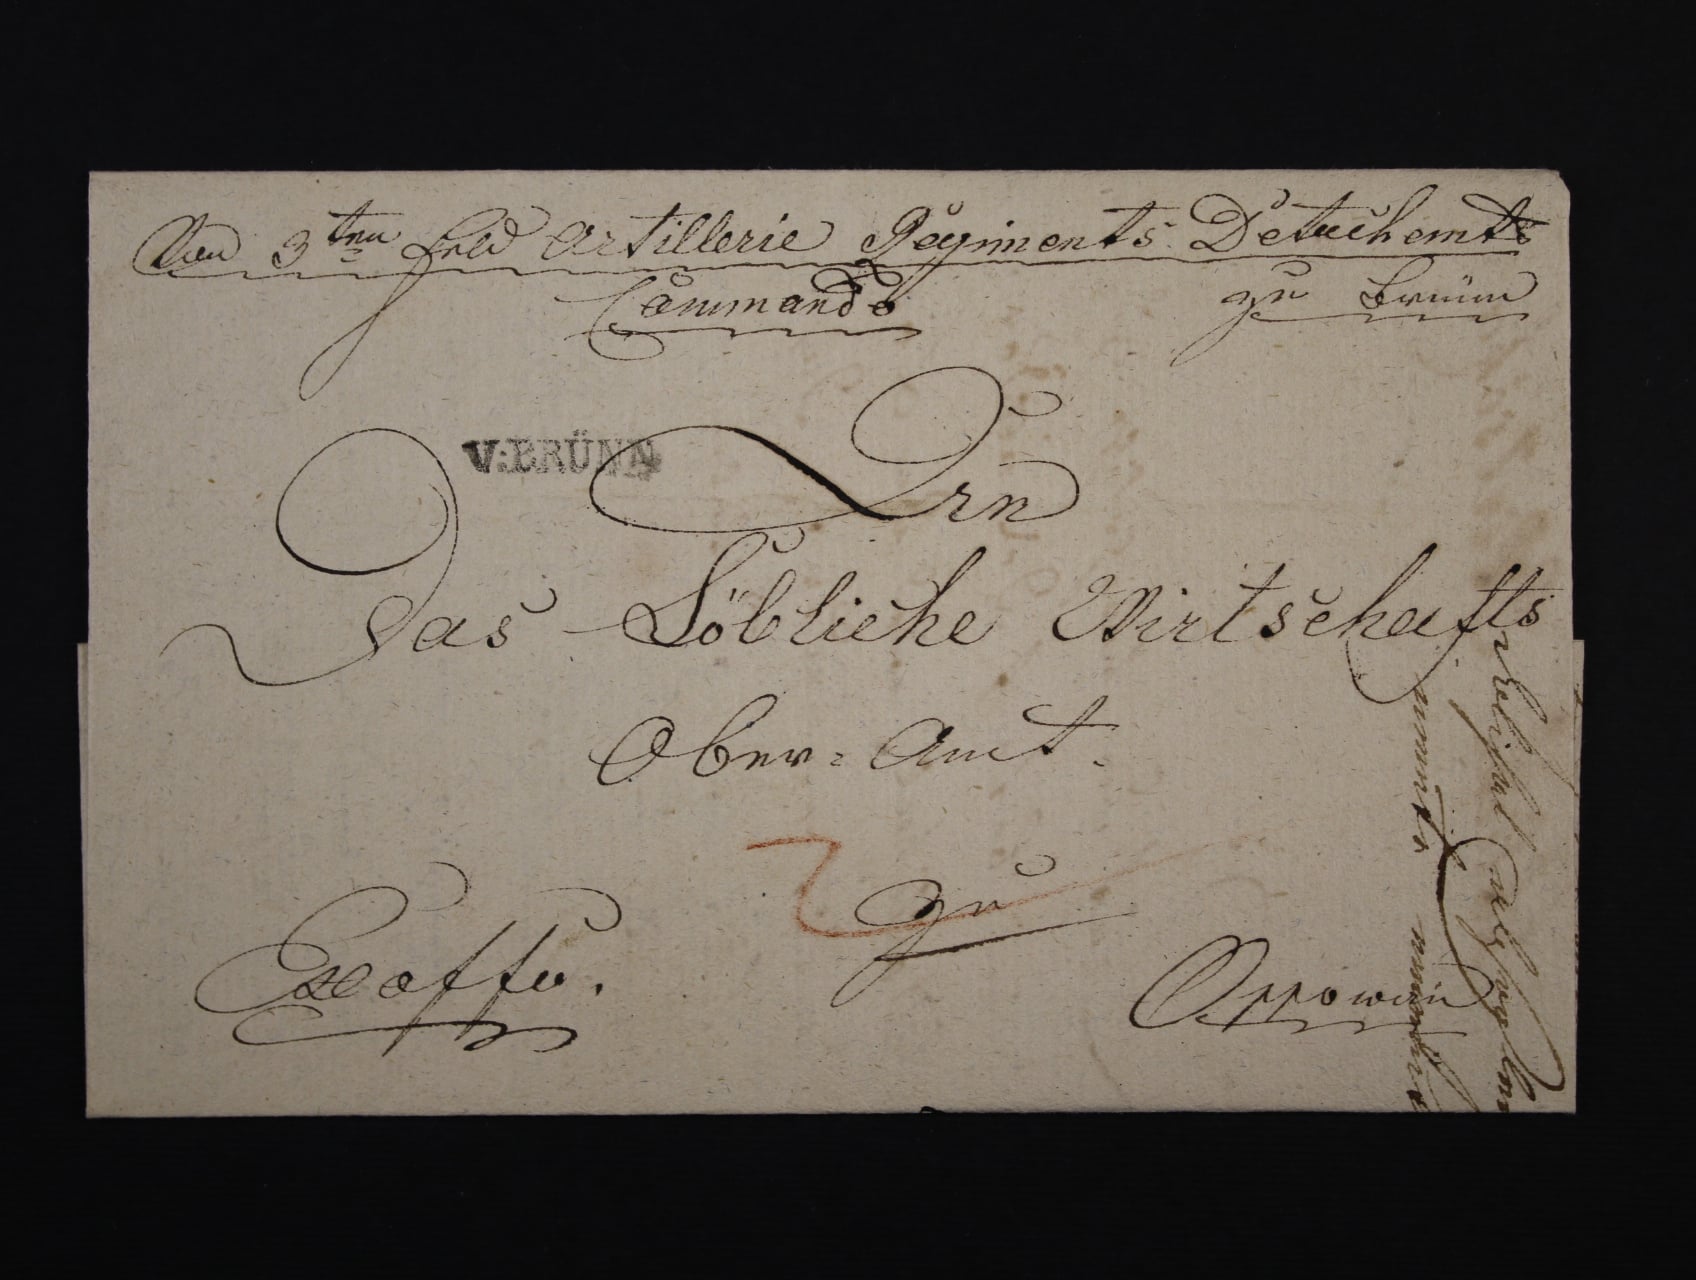 Von 3ten Feld Artillerie Regiments Detachemts
Commando zu Brünn
V:BRÜNN
An
Das Löbliche Wirtschafts
Ober= Amt.
zu
Exoffo.